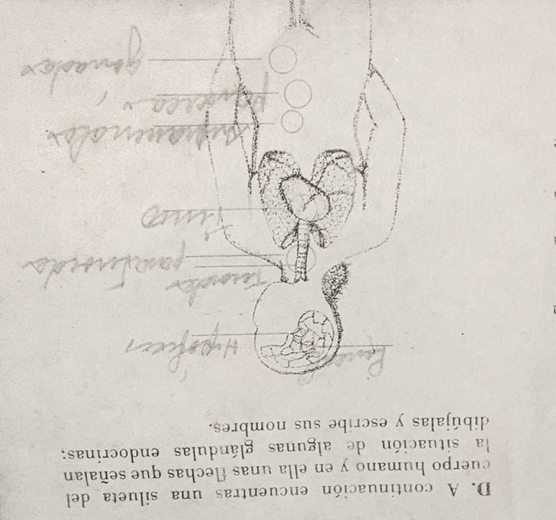 D. A continuación encuentras una silueta del
cuerpo humano y en ella unas flechas que señalan
la situación de algunas glándulas endocrinas;
dibújalas y escribe sus nombres.
Hipófisis
Tiroides
paratiroides
Timo
suprarrenales
páncreas
gonadas